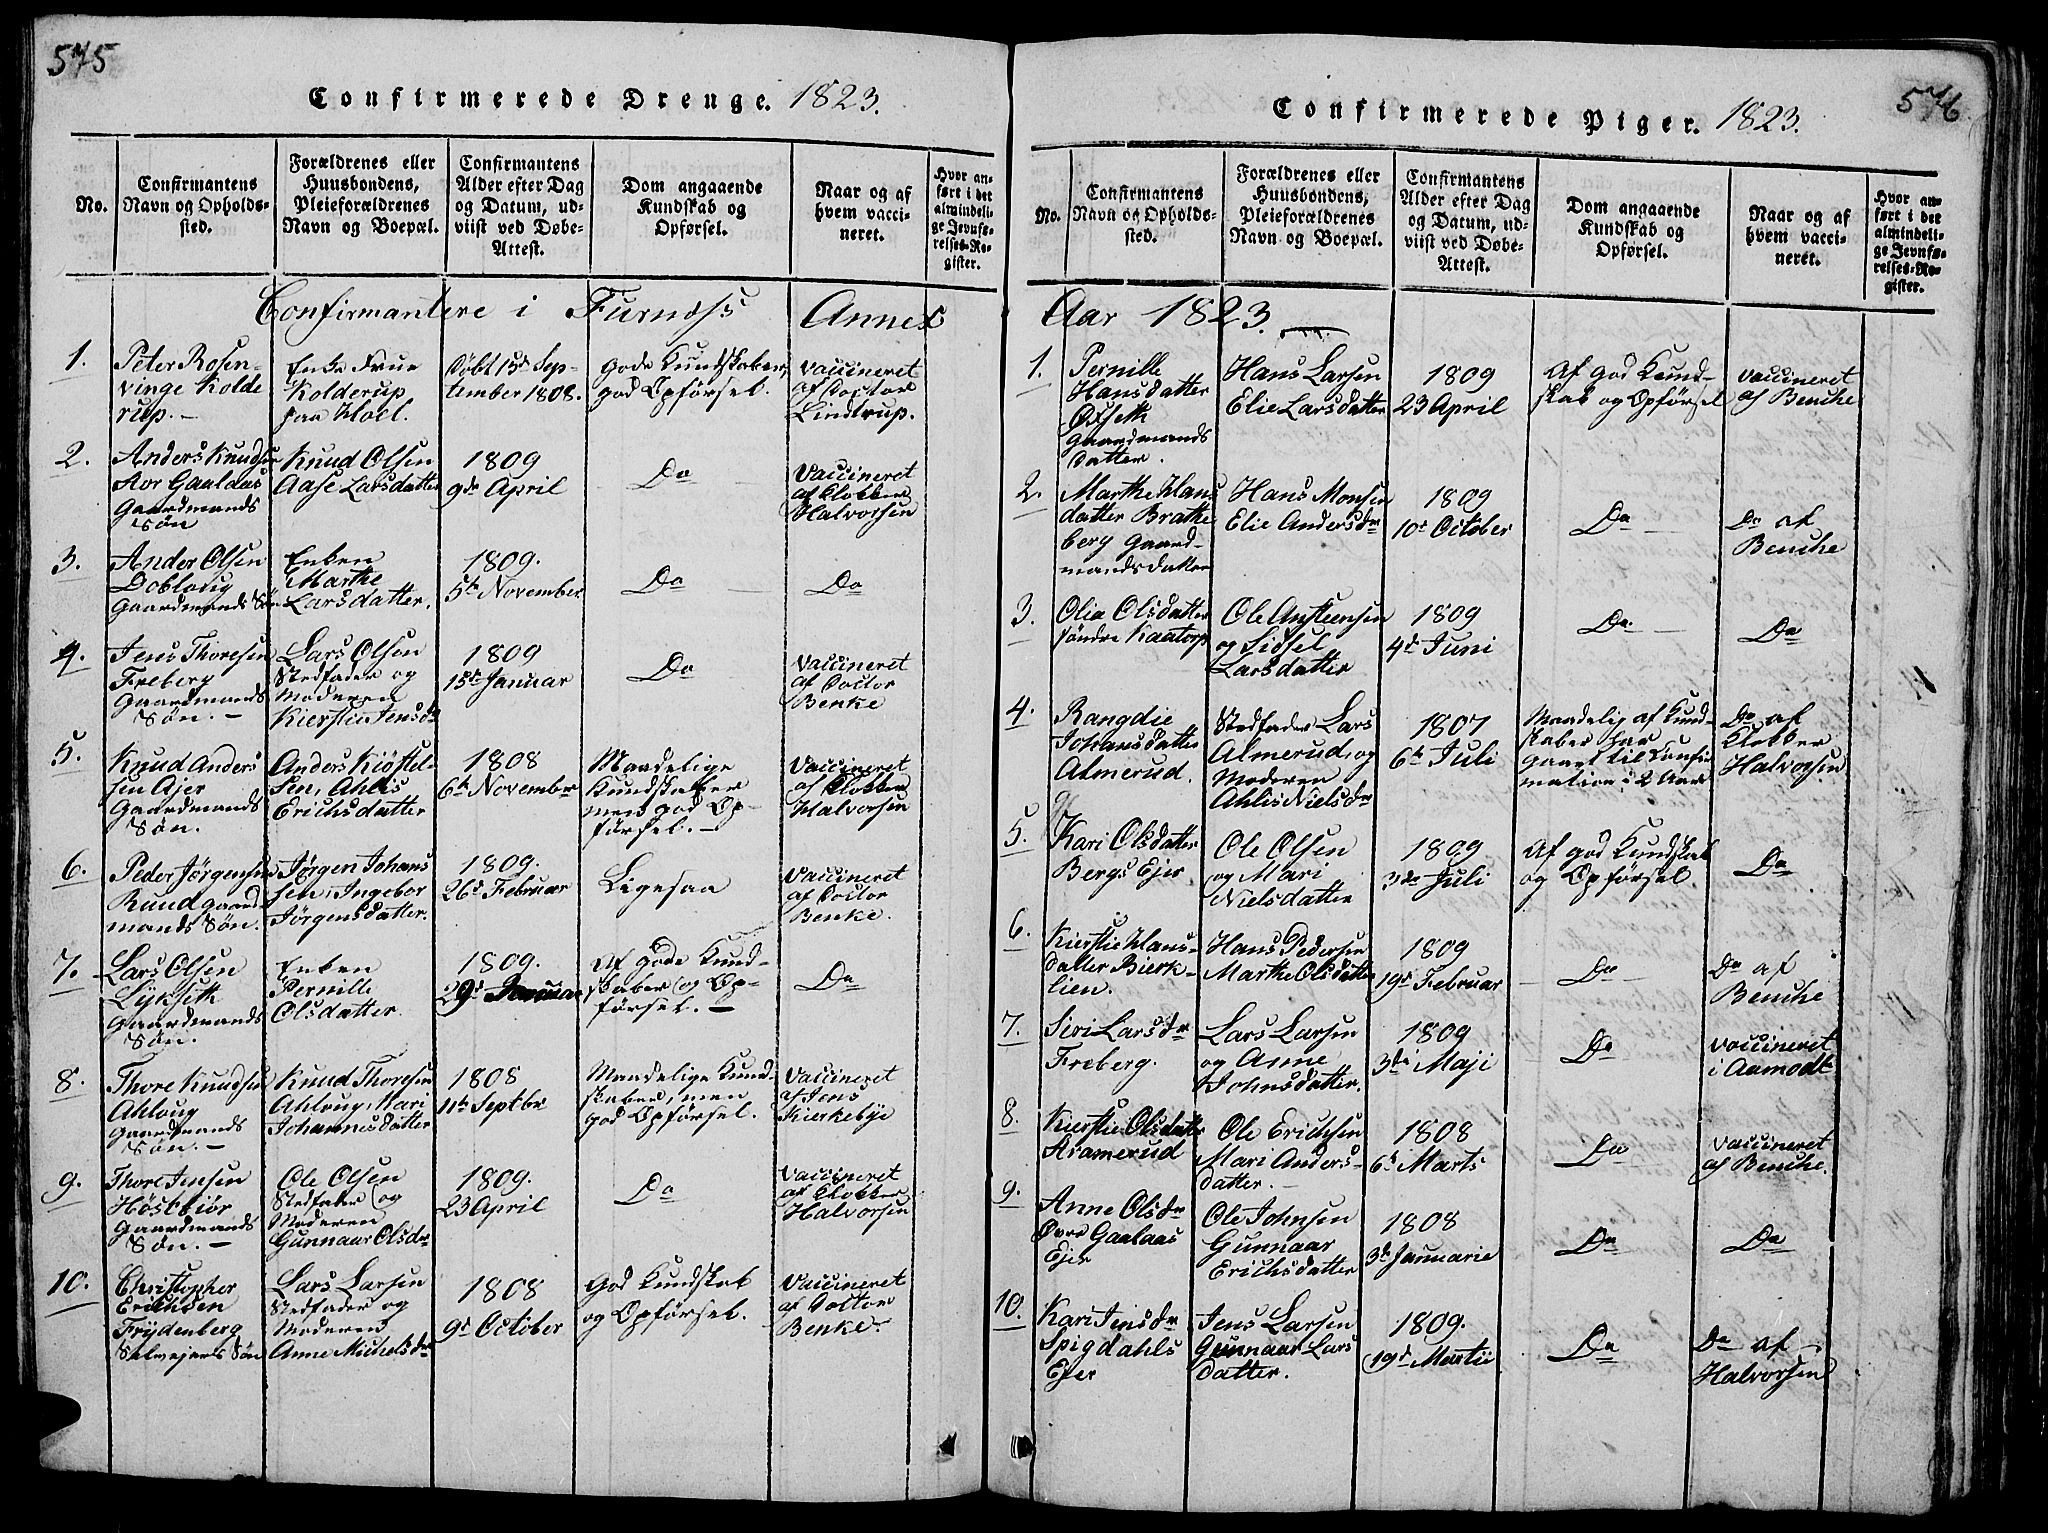 575
Confirmerede Drenge. 1823.
No.
Confirmantens
Navn og Opholds-
sted.
Forældrenes eller
Huusbondens,
Pleieforældrenes
Navn og Boepæl.
Confirmantens
Alder efter Dag
og Datum, ud-
viist ved Døbe-
Attest.
Dom angaaende
Kundskab og
Opførsel.
Naar og af
hvem vacci-
neret.
Hvor an-
ført i det
almindeli-
ge Jevnfø-
relses-Re-
gister.
Confirmantere i Furnæss Annex
1.
Peter Rosen-
vinge Kolde
rup. -
Enke Frue
Kolderup
paa Hoel.
Døbt 15de Sep-
tember 1808.
gode Kundskaber,
god Opførsel.
Vaccineret
af Doctor
Lindrup.
2.
Anders Knudsen
Nor Gaalaas
Gaardmands
Søn
Knud Olsen
Aase Larsdatter
1809
9de April
Do
Vaccineret
af Klokker
Halvorsen
3.
Ander Olsen
Dobloug
Gaardmands Søn
Enken
Marthe
Larsdatter.
1809.
5te November
Do
Do
4.
Jens Thoresen
Freberg
Gaardmands
Søn. -
Lars Olsen
Stedfader og
Moderen
Kierstie Jensdr
1809
15de Januar
Do
Vaccineret
af Doctor
Benke
5.
Knud Anders
sen Ajer
Gaardmands
Søn.
Anders Kiøstel-
sen, Ahlis
Erichsdatter
1808
6te November
Maadelige
Kundskaber
men god Op-
førsel. -
Vaccineret
af Klokker
Halvorsen
6.
Peder Jørgensen
Ruud gaard
mands Søn.
Jørgen Johans
sen, Ingebor
Jørgensdatter.
1809.
26de Februar
Ligesaa
Vaccineret
af Doctor
Benke.
7.
Lars Olsen
Lykseth
Gaardmands
Søn.
Enken
Pernille
Olsdatter.
1809.
29de Januar
Af gode Kund-
skaber og Op-
førsel. -
Do
8.
Thore Knudsen
Ahloug
Gaardmands
Søn. -
Knud Thoresen
Ahloug, Mari
Johannesdatter
1808
11te Septbr
Maadelige Kund
skaber, men
god Opførsel.
Vaccineret
af Jens
Kierkebye
9.
Thore Jensen
Høstbiør
Gaardmands
Søn. -
Ole Olsen
Stedfader og
Moderen
Gunnaar Olsdr
1809.
23 April
Do
Vaccineret
af Klokker
Halvorsen
10.
Christopher
Erichsen
Frydenberg
Selvejers Søn
Lars Larsen
Stedfader og
Moderen
Anne Michelsdr
1808
9de October
God Kundskab
og Opførsel.
Vaccineret
af Doctor
Benke.
576
Confirmerede Piger. 1823.
No.
Confirmantens
Navn og Opholds-
sted.
Forældrenes eller
Huusbondens,
Pleieforældrenes
Navn og Boepæl.
Confirmantens
Alder efter Dag
og Datum, ud-
viist ved Døbe-
Attest.
Dom angaaende
Kundskab og
Opførsel.
Naar og af
hvem vacci-
neret.
Hvor an-
ført i det
almindeli-
ge Jevnfø-
relses-Re-
gister.
Aar 1823.
1.
Pernille
Hansdatter
Gaardmands
Datter.
Hans Larsen
Elie Larsdatter
1809
23 April
Af god Kund-
skab og Opførsel
Vaccineret
af Benche
2.
Marthe Hans
datter Brathe
berg Gaard-
mandsdatter
Hans Monsen
Elie Andersdr
1809
10de October
Do
Do af
Benche
3.
Olia Olsdatter
søndre Kaatorp
Ole Anstensen
og Sidsel
Larsdatter
1809
4de Juni
Do
Do
4.
Rangdie
Johansdatter
Almerud.
Stedfader Lars
Almerud, og
Moderen
Ahlis Nielsdr
1807
6te Juli
Maadelig af Kund-
skaber har
gaaet til Confir
mation i 2 Aar
Do af
Klokker
Halvorsen
5.
Kari Olsdatter
Bergs Ejer
Ole Olsen
og Mari
Nielsdatter
1809
3de Juli
Af god Kundskab
og Opførsel.
Do
6.
Kierstie Hans-
datter Bierk-
lien.
Hans Pedersen
Marthe Olsdatter
1809
19de Februar
Do
Do af
Benche
7.
Siri Larsdr
Freberg.
Lars Larsen
og Anne
Johnsdatter.
1809
3die Maji
Do
Vaccineret
i Aamodt
8.
Kierstie Olsdatter
Aramerud
Ole Erichsen
Mari Anders-
datter. -
1808
6te Marts
Do
Vaccineret
af Benche.
9.
Anne Olsdr
Øvre Gaalaas
Ejer
Ole Johnsen
Gunnaar
Erichsdatter
1808
3de Januarie
Do
Do
10.
Kari Jensdr
Spigdahls
Ejer
Jens Larsen
Gunnaar Lars
datter.
1809.
19de Martii
Do
Do af
Halvorsen